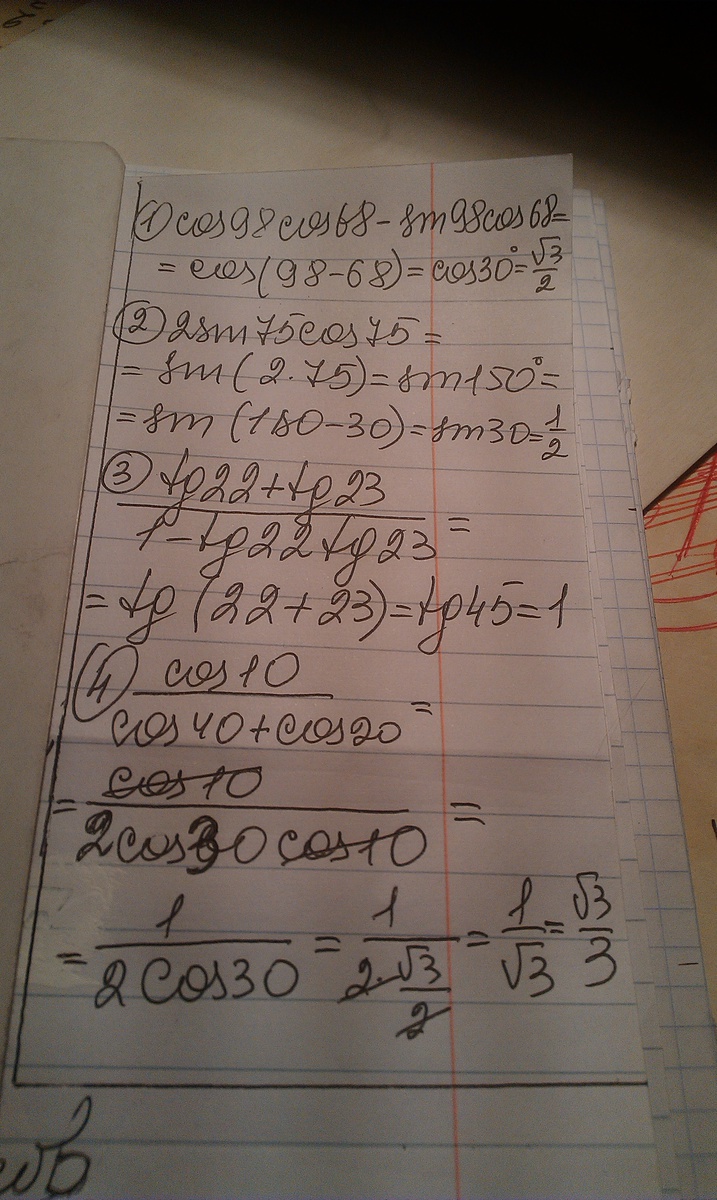 1) cos98cos68-sin98cos68=
= cos(98-68)=cos30°=√3/2
2) 2sin75cos75=
= sin(2·75)=sin150°=
= sin(180-30)=sin30=1/2
3) tg22+tg23
1-tg22tg23 =
= tg(22+23)=tg45=1
4) cos10
cos40+cos20 =
= cos10
2cos30cos10 =
= 1/(2cos30) = 1/(2·√3/2) = 1/√3 = √3/3